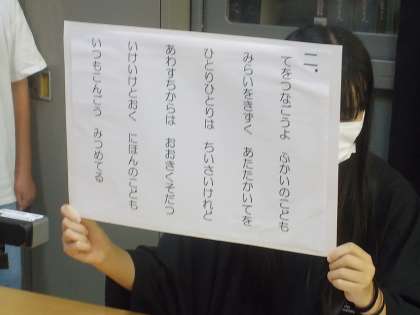 二.
てをつなごうよ　ふかいのこども
みらいをきずく　あたたかいてを
ひとめひとめは　ちいさいけれど
あわすちからは　おおきくそだつ
いけいけとおく　にほんのこども
いつもこんごう　みつめてる